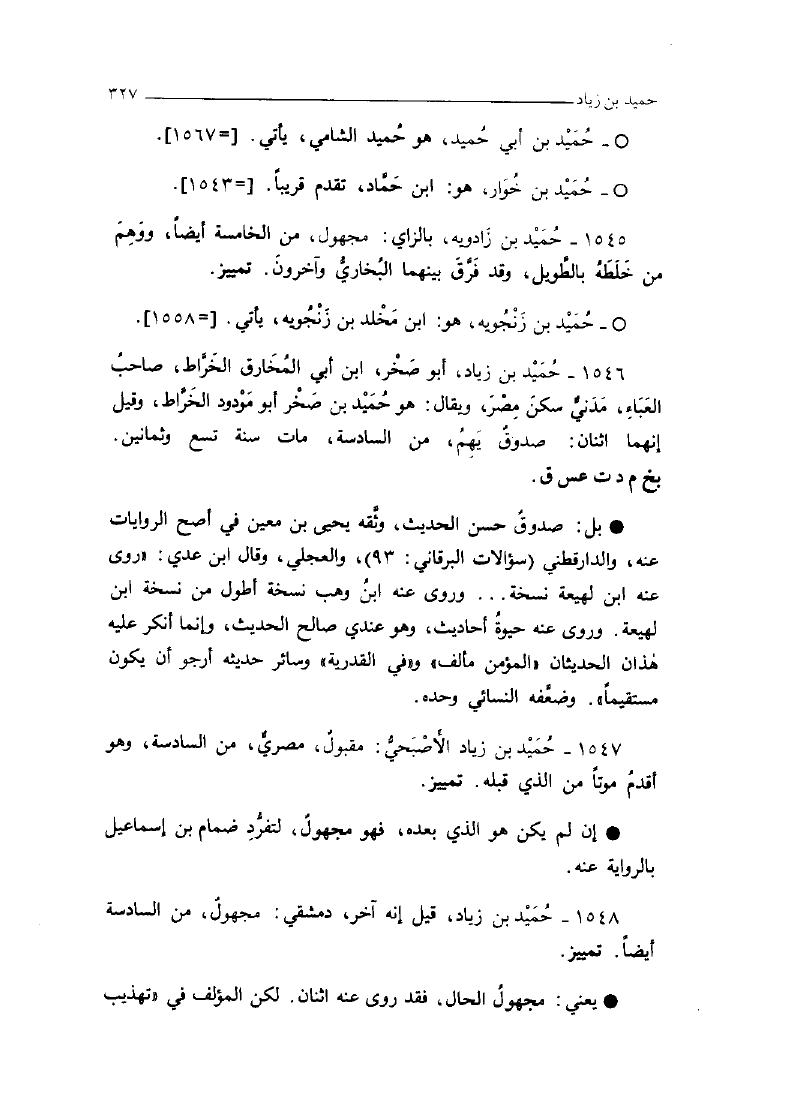 حميد بن زياد ٣٢٧
○ ـ حُمَيْد بن أبي حُميد، هو حُميد الشامي، يأتي. [=١٥٦٧].
○ ـ حُمَيْد بن خُوَار، هو: ابن حَمَّاد، تقدم قريباً. [=١٥٤٣].
١٥٤٥ ـ حُمَيْد بن زَادويه، بالزاي: مجهول، من الخامسة أيضاً، ووَهِمَ
من خَلَطَهُ بالطَّويل، وقد فَرَّقَ بينهما البُخاريُّ وآخرونَ. تمييز.
○ ـ حُمَيْد بن زَنْجُويه، هو: ابن مَخْلد بن زَنْجُويه، يأتي. [=١٥٥٨].
١٥٤٦ ـ حُمَيْد بن زياد، أبو صَخْر، ابن أبي المُخَارق الخَرَّاط، صاحبُ
العَبَاءِ، مَدَنيٌّ سكنَ مِصْرَ، ويقال: هو حُمَيْد بن صَخْر أبو مَوْدود الخَرَّاط، وقيل
إنهما اثنان: صدوقٌ يَهِمُ، من السادسة، مات سنة تسع وثمانين.
بخ م د ت عس ق.
● بل: صدوقٌ حسن الحديث، وثَّقه يحيى بن معين في أصح الروايات
عنه، والدارقطني (سؤالات البرقاني: ٩٣)، والعجلي، وقال ابن عدي: «روى
عنه ابن لهيعة نسخة... وروى عنه ابنُ وهب نسخة أطول من نسخة ابن
لهيعة. وروى عنه حيوةُ أحاديث، وهو عندي صالح الحديث، وإنما أنكر عليه
هٰذان الحديثان «المؤمن مألف» و«في القدرية» وسائر حديثه أرجو أن يكون
مستقيماً». وضعَّفه النسائي وحده.
١٥٤٧ ـ حُمَيْد بن زياد الأَصْبَحيُّ: مقبولٌ، مصريٌّ، من السادسة، وهو
أقدمُ موتاً من الذي قبله. تمييز.
● إن لم يكن هو الذي بعده، فهو مجهولٌ، لتفرُّدِ ضمام بن إسماعيل
بالرواية عنه.
١٥٤٨ ـ حُمَيْد بن زياد، قيل إنه آخر، دمشقي: مجهولٌ، من السادسة
أيضاً. تمييز.
● يعني: مجهولُ الحال، فقد روى عنه اثنان. لكن المؤلف في «تهذيب